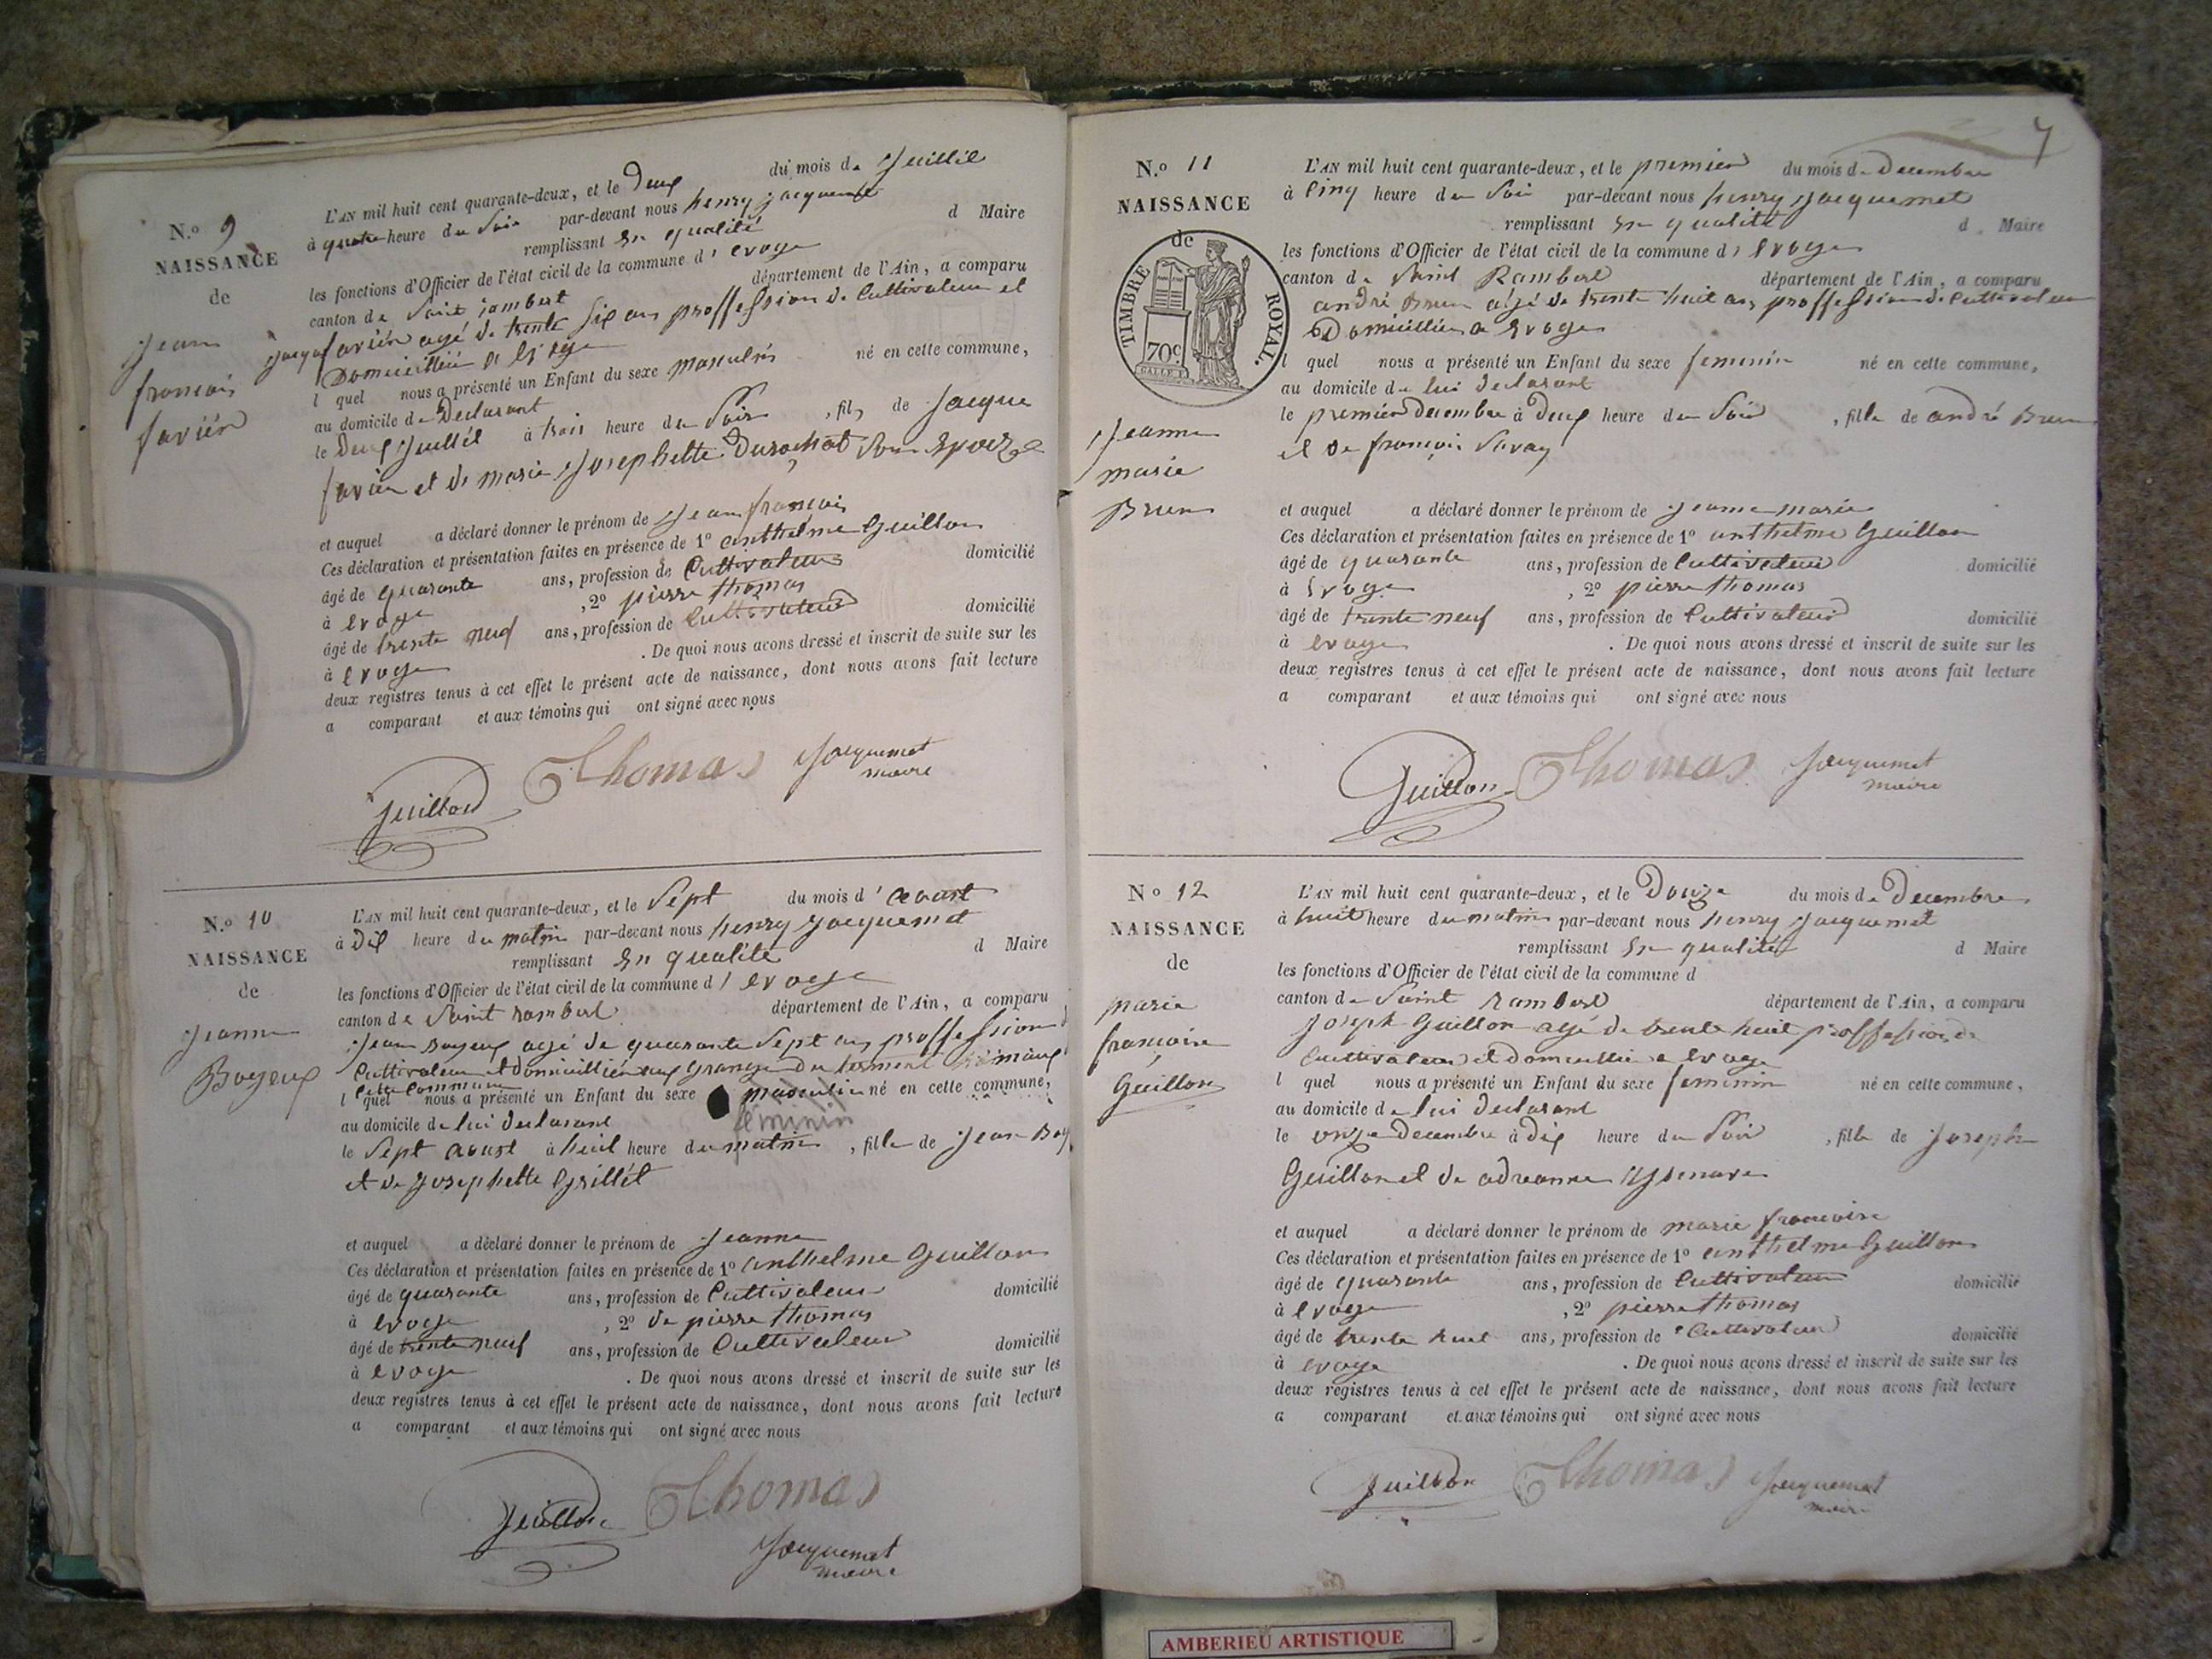 N.o 9
NAISSANCE
de
Jean
francois
favier
L'AN mil huit cent quarante-deux, et le Deux du mois de Juillet
à quatre heure du Soir par-devant nous henry jacquemet
remplissant En qualité d Maire
les fonctions d'Officier de l'état civil de la commune d' evoge
canton de Saint rambert département de l'Ain, a comparu
jacque favier agé de trente six ans proffession de Cultivateur et
Domicillier a Evoge
l quel nous a présenté un Enfant du sexe masculin né en cette commune,
au domicile de Declarant
le Deux Juillet à trois heure du Soir , fils de Jacque
favier et de marie Josephette Durochat Son Epouze
et auquel a déclaré donner le prénom de Jean françois
Ces déclaration et présentation faites en présence de 1o anthelme Guillon
âgé de quarante ans, profession de Cultivateur domicilié
à evoge , 2o pierre thomas
âgé de trente neuf ans, profession de Cultivateur domicilié
à evoge . De quoi nous avons dressé et inscrit de suite sur les
deux registres tenus à cet effet le présent acte de naissance, dont nous avons fait lecture
a comparant et aux témoins qui ont signé avec nous
Guillon Thomas Jacquemet
maire
N.o 10
NAISSANCE
de
Jeanne
Boyeux
L'AN mil huit cent quarante-deux, et le Sept du mois d' aoust
à Dix heure du matin par-devant nous henry Jacquemet
remplissant En qualité d Maire
les fonctions d'Officier de l'état civil de la commune d' evoge
canton de Saint rambert département de l'Ain, a comparu
Jean Boyeux agé de quarante Sept ans proffession
Cultivateur et domicillier aux Grange du
Cette Commune
l quel nous a présenté un Enfant du sexe masculin né en cette commune,
féminin
au domicile de lui declarant
le Sept aoust à huit heure du matin , fille de Jean Boy
et de Josephette Grillet
et auquel a déclaré donner le prénom de Jeanne
Ces déclaration et présentation faites en présence de 1o anthelme Guillon
âgé de quarante ans, profession de Cultivateur domicilié
à evoge , 2o de pierre thomas
âgé de trente neuf ans, profession de Cultivateur domicilié
à evoge . De quoi nous avons dressé et inscrit de suite sur les
deux registres tenus à cet effet le présent acte de naissance, dont nous avons fait lecture
a comparant et aux témoins qui ont signé avec nous
Guillon Thomas
Jacquemet
maire
7
N.o 11
NAISSANCE
de
TIMBRE ROYAL.
70c
Jeanne
marie
Brun
L'AN mil huit cent quarante-deux, et le premier du mois de Decembre
à Cinq heure du Soir par-devant nous henry Jacquemet
remplissant En qualité d Maire
les fonctions d'Officier de l'état civil de la commune d' Evoge
canton de Saint Rambert département de l'Ain, a comparu
andré Brun agé de trente huit ans proffession de Cultivateur
Domicillier a Evoge
l quel nous a présenté un Enfant du sexe feminin né en cette commune,
au domicile de lui declarant
le premier decembre à Deux heure du Soir , fille de andré Brun
et de françoise Savay
et auquel a déclaré donner le prénom de Jeanne marie
Ces déclaration et présentation faites en présence de 1o anthelme Guillon
âgé de quarante ans, profession de Cultivateur domicilié
à Evoge , 2o pierre thomas
âgé de trente neuf ans, profession de Cultivateur domicilié
à evoge . De quoi nous avons dressé et inscrit de suite sur les
deux registres tenus à cet effet le présent acte de naissance, dont nous avons fait lecture
a comparant et aux témoins qui ont signé avec nous
Guillon Thomas Jacquemet
maire
No 12
NAISSANCE
de
marie
francoise
Guillon
L'AN mil huit cent quarante-deux, et le Douze du mois de Decembre
à huit heure du matin par-devant nous henry Jacquemet
remplissant En qualité d Maire
les fonctions d'Officier de l'état civil de la commune d
canton de Saint rambert département de l'Ain, a comparu
Joseph Guillon agé de trente huit proffession de
Cultivateur et domicillier a evoge
l quel nous a présenté un Enfant du sexe feminin né en cette commune,
au domicile de lui declarant
le onze decembre à dix heure du Soir , fille de Joseph
Guillon et de adreanne
et auquel a déclaré donner le prénom de marie francoise
Ces déclaration et présentation faites en présence de 1o anthelme Guillon
âgé de quarante ans, profession de Cultivateur domicilié
à evoge , 2o pierre thomas
âgé de trente neuf ans, profession de Cultivateur domicilié
à evoge . De quoi nous avons dressé et inscrit de suite sur les
deux registres tenus à cet effet le présent acte de naissance, dont nous avons fait lecture
a comparant et aux témoins qui ont signé avec nous
Guillon Thomas Jacquemet
maire
AMBERIEU ARTISTIQUE